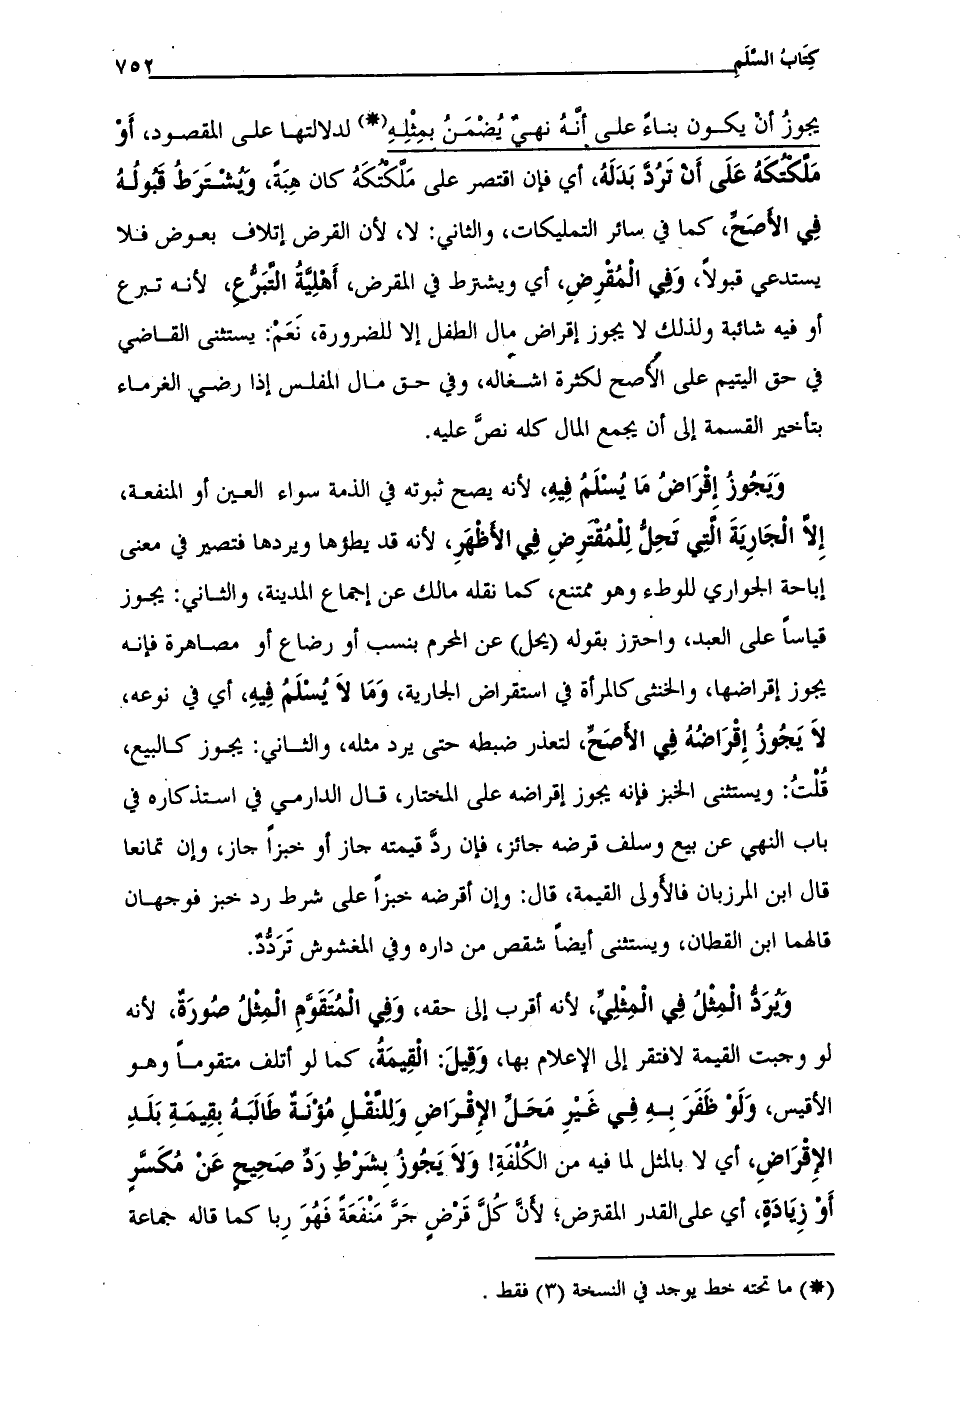 كِتَابُ السَّلَمِ ٧٥٢
يجوزُ أنْ يكون بناءً على أنَّهُ نهيٌ يُضْمَنُ بِمِثْلِهِ(*) لدلالتها على المقصود، أَوْ
مَلَّكْتُكَهُ عَلَى أَنْ تَرُدَّ بَدَلَهُ، أي فإن اقتصر على مَلَّكْتُكَهُ كان هِبَةً، وَيُشْتَرَطُ قَبُولُهُ
فِي الأَصَحِّ، كما في سائر التمليكات، والثاني: لا، لأن القرض إتلاف بعوض فلا
يستدعي قبولاً، وَفِي الْمُقْرِضِ، أي ويشترط في المقرض، أَهْلِيَّةُ التَّبَرُّعِ، لأنه تبرع
أو فيه شائبة ولذلك لا يجوز إقراض مال الطفل إلا للضرورة، نَعَمْ: يستثنى القاضي
في حق اليتيم على الأصح لكثرة اشغاله، وفي حق مال المفلس إذا رضي الغرماء
بتأخير القسمة إلى أن يجمع المال كله نصَّ عليه.
وَيَجُوزُ إِقْرَاضُ مَا يُسْلَمُ فِيهِ، لأنه يصح ثبوته في الذمة سواء العين أو المنفعة،
إِلاَّ الْجَارِيَةَ الَّتِي تَحِلُّ لِلْمُقْتَرِضِ فِي الأَظْهَرِ، لأنه قد يطؤها ويردها فتصير في معنى
إباحة الجواري للوطء وهو ممتنع، كما نقله مالك عن إجماع المدينة، والثاني: يجوز
قياساً على العبد، واحترز بقوله (يحل) عن المحرم بنسب أو رضاع أو مصاهرة فإنه
يجوز إقراضها، والخنثى كالمرأة في استقراض الجارية، وَمَا لاَ يُسْلَمُ فِيهِ، أي في نوعه،
لاَ يَجُوزُ إِقْرَاضُهُ فِي الأَصَحِّ، لتعذر ضبطه حتى يرد مثله، والثاني: يجوز كالبيع،
قُلْتُ: ويستثنى الخبز فإنه يجوز إقراضه على المختار، قال الدارمي في استذكاره في
باب النهي عن بيع وسلف قرضه جائز، فإن ردَّ قيمته جاز أو خبزاً جاز، وإن تمانعا
قال ابن المرزبان فالأولى القيمة، قال: وإن أقرضه خبزاً على شرط رد خبز فوجهان
قالهما ابن القطان، ويستثنى أيضاً شقص من داره وفي المغشوش تَرَدُّدٌ.
وَيُرَدُّ الْمِثْلُ فِي الْمِثْلِيِّ، لأنه أقرب إلى حقه، وَفِي الْمُتَقَوَّمِ الْمِثْلُ صُورَةً، لأنه
لو وجبت القيمة لافتقر إلى الإعلام بها، وَقِيلَ: الْقِيمَةُ، كما لو أتلف متقوماً وهو
الأقيس، وَلَوْ ظَفَرَ بِهِ فِي غَيْرِ مَحَلِّ الإِقْرَاضِ وَلِلنَّقْلِ مُؤْنَةٌ طَالَبَهُ بِقِيمَةِ بَلَدِ
الإِقْرَاضِ، أي لا بالمثل لما فيه من الكُلْفَةِ! وَلاَ يَجُوزُ بِشَرْطِ رَدِّ صَحِيحٍ عَنْ مُكَسَّرٍ
أَوْ زِيَادَةٍ، أي على القدر المقترض؛ لأَنَّ كُلَّ قَرْضٍ جَرَّ مَنْفَعَةً فَهُوَ رِبا كما قاله جماعة
(*) ما تحته خط يوجد في النسخة (٣) فقط .